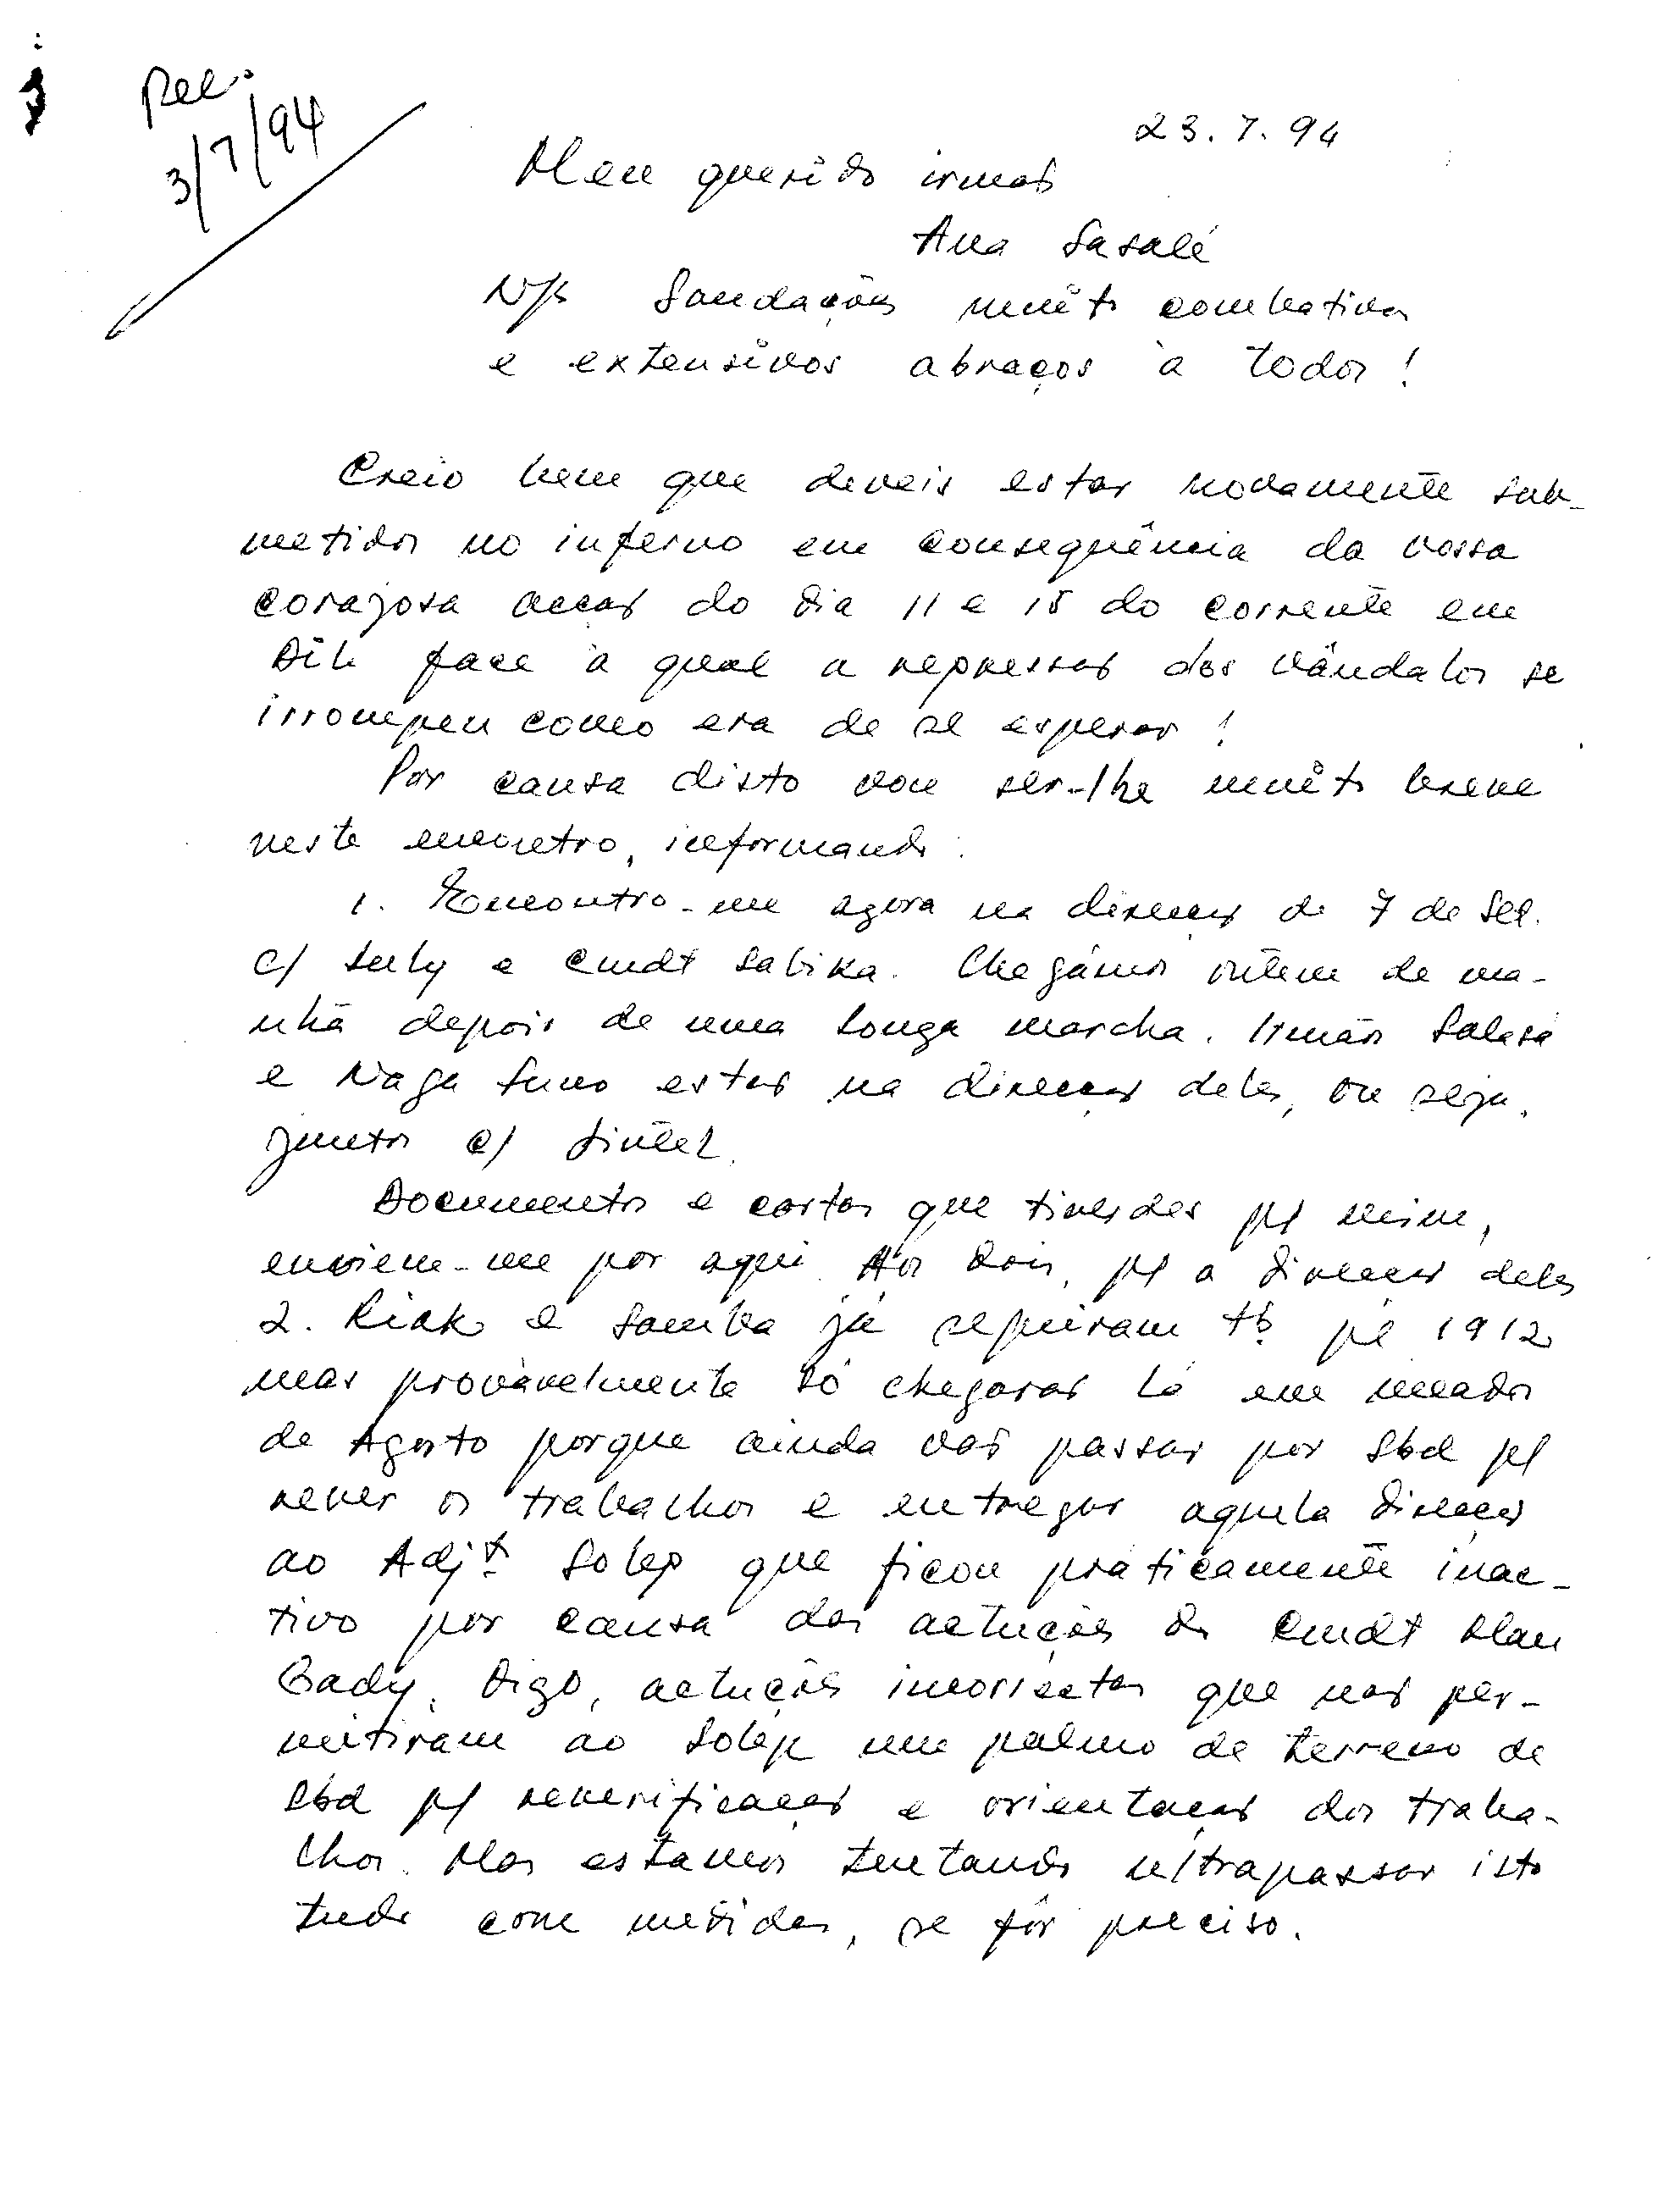 Rec.
3/7/94
23.7.94
Meu querido irmão
Ana Sasalé
N/s Saudações muito combativas
e extensivos abraços à todos!
Creio bem que deveis estar novamente sub-
metidos no inferno em consequência da vossa
corajosa acção do dia 11 e 15 do corrente em
Díli face à qual a repressão dos vândalos se
irrompeu como era de se esperar!
Por causa disto vou ser-lhe muito breve
neste encontro, informando:
1. Encontro-me agora na direcção de 7 de Set.
c/ Suly e Cmdt Sabika. Chegámos ontem de ma-
nhã depois de uma longa marcha. Irmãos Salasa
e Naga Suno estão na direcção deles, ou seja,
juntos c/
Documentos e cartas que tiverdes p/ mim,
enviem-me por aqui. Aos dois, p/ a direcção deles
2. Riak e Samba já seguiram tb. pª 1912
mas provàvelmente só chegarão lá em meados
de Agosto porque ainda vão passar por Sbd p/
rever os trabalhos e entregar aquela direcção
ao Adjt. Solep que ficou pràticamente inac-
tivo por causa das actuções do Cmdt Mau
Gady. Digo, actuções incorrectas que não per-
mitiram ao Solep um palmo de terreno de
Sbd p/ reverificação e orientação dos traba-
lhos. Mas estamos tentando ultrapassar isto
tudo com medidas, se fôr preciso.